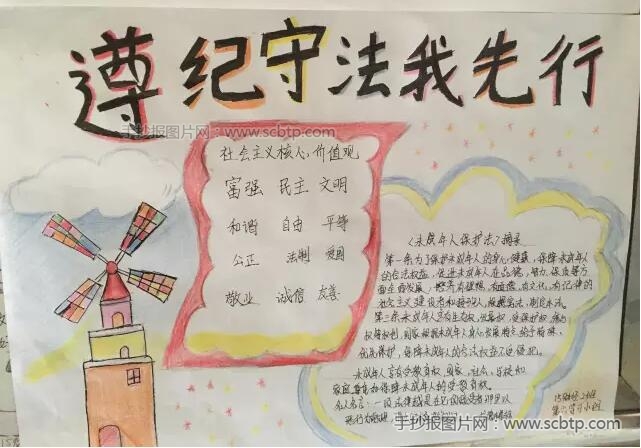 遵纪守法我先行
手抄报图片网：www.scbtp.com
社会主义核心价值观
富强 民主 文明
和谐 自由 平等
公正 法制 爱国
敬业 诚信 友善
《未成年人保护法》摘录
第一条为了保护未成年人的身心健康，保障未成年人
的合法权益，促进未成年人在品德、智力、体质等方
面全面发展，培养有理想、有道德、有文化、有纪律的
社会主义建设者和接班人，根据宪法，制定本法。
第三条未成年人享有生存权、发展权、受保护权、参与
权等权利，国家根据未成年人身心发展特点给予特殊、
优先保护，保障未成年人的合法权益不受侵犯。
未成年人享有受教育权，国家、社会、学校和
家庭尊重和保障未成年人的受教育权。
名人名言：一
手抄报图片网：www.scbtp.com